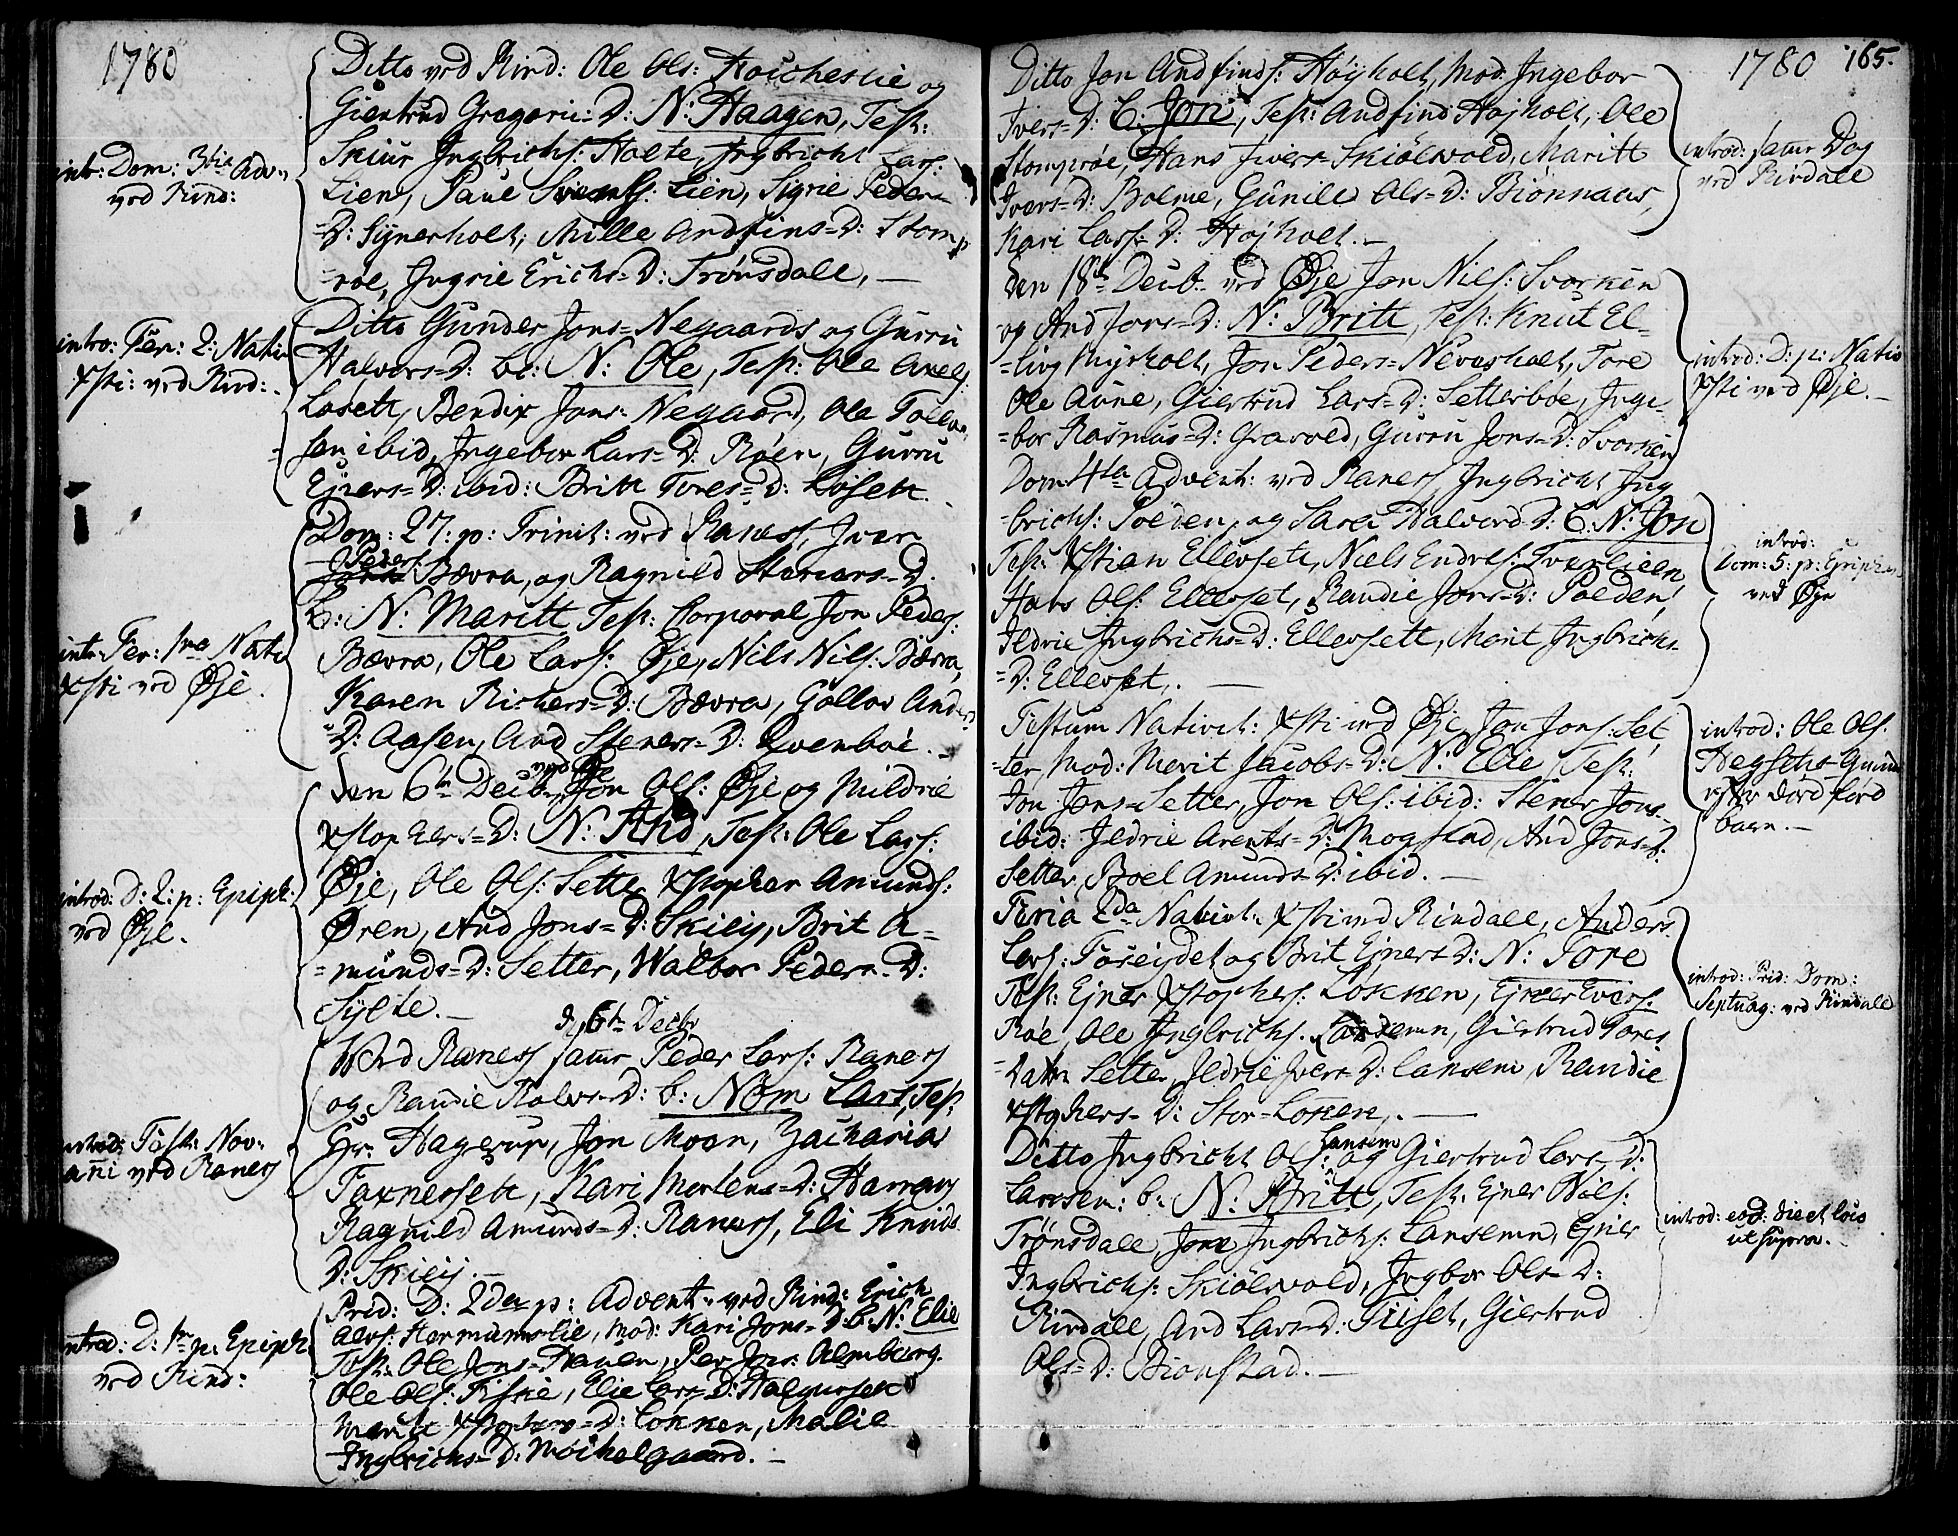 1780
Ditto ved Rind: Ole Ols: Hoücheslie og
Giertrud Gregorii=D: N: Haagen, Test:
Skiur Ingbrichs: Holte, Ingbricht Lars:
Lien, Paul Svends: Lien, Sigrie Peders
=D: Synerholt, Mille Andfins=D: Stomp
=röe, Ingrie Erichs=D: Trönsdall, —
intr: Dom: 3tia Adv:
ved Rind:
Ditto Gunder Jons= Negaards og Gurru
Halvors=D: b: N: Ole, Test: Ole Arels:
Losett, Bendix Jons: Negaard, Ole Tollev
sen ibid, Ingebor Lars=D: Röen, Gurru
Ejners=D: ibid: Britt Tores=D: Losett.
intro: Fer: 2: Nativ
Xsti: ved Rind:
Dom: 27: p: Trinit: ved Ranes, Iver
Peders: Bævra, og Ragnild Sterars=D:
b: N: Maritt Test: Corporal Jon Peders:
Bævra, Ole Lars: Øje, Nils Nils: Bævra,
Karen Richers=D: Bævra, Gollov Anders
=D: Aasen, And Steners=D: Qvenböe.
intr: Fer: 1ma Nativ
Xsti ved Øje.
den 6te Decbr ved Øje Jon Ols: Øje og Mildrie
Xstophers=D: N: And, Test: Ole Lars:
Øje, Ole Ols: Sette Xstopher Amunds:
Øren, And Jons=D: Skiej, Brit A=
=munds=D: Setter, Walbor Peders=D:
Sylte. —
introd: D: 2: p: Epiph:
ved Øje.
d: 6te Decbr
Ved Ranes samme Peder Lars: Ranes
og Randie Rolvs=D: b: Nom Lars, Test:
Hr: Hagerup, Jon Moan, Zacharias
Taxnersett, Kari Mortens=D: Hamnes
Ragnild Amunds=D: Ranes, Eli Knuds
D: Skiej. —
introd: Fest: Nov:
anni ved Ranes
Prid: D: 2da p: Advent: ved Rind: Erich
Alvs: Hermunslie, Mod: Kari Jons=D: b: N: Elie
Test: Ole Jons= Hauen, Per Jons: Almberg.
Ole Ols: Fiske, Elie Lars=D: Halgunset
Marit Xstophers=D: Löcken, Malie
Ingbrichs=D: Möikelgaard. —
introd: D: 1ma p: Epiph:
ved Rind:
1780 165.
Ditto Jon Andfinds: Höyholt, Mod: Ingebor
Ivers=D: C: Jon, Test: Andfind Höjholt, Ole
Stomprøe, Hans Ivers= Skiölvold, Maritt
Ivers=D: Bolme, Gunild Ols=D: Biönnaas,
Kari Lars=D: Höjholt. —
introd: samme Dag
ved Rindall
den 18de Decbr ved Øje Jon Nils: Svorken
og And Jons=D: N: Britt, Test: Knut El=
=ling Myrholt, Jon Peders= Neverholt, Tore
Ole Aune, Giertrud Lars=D: Setterböe, Inge=
=bor Rasmus=D: Grasvold, Gurru Jons=D: Svorken
introd: D: p: Nativ
Xsti ved Øje. —
Dom: 4ta Advent: ved Ranes Ingbricht Ing
=brichs: Polden, og Sara Halvors D: C: N: Jon
Test: Xstian Ellevsett, Niels Endres: Tverlieen,
Hans Ols: Ellevset, Randie Jons=D: Polden,
Ildrie Ingbrichs=D: Ellevsett, Marit Ingbrichs
=D: Ellevset. —
introd:
Dom: 5: p: Epiphan
ved Øje
Festum Nativit: Xsti ved Øje Jon Jons: Set
=ter, Mod: Merit Jacobs=D: N: Elie Test:
Jon Jons= Setter, Jon Ols: ibid: Stener Jons
ibid: Ildrie Arents=D: Mogstad, And Jons=D:
Setter, Boel Amunds=D: ibid. —
introd: Ole Ols:
Hegsetts
efter död föd
barn. —
Feria 2da Nativit: Xsti ved Rindall, Anders
Lars: Foseydet og Brit Ejners D: N: Tore
Test: Ejner Xstophers: Löcken, Ejner Evers:
Röe, Ole Ingbrichs: Landsemn, Giertrud Tores
=Datter Setter, Ildrie Ivers=D: Lansem, Randie
Xstophers= D: Stor=Löken. —
introd: Prid: Dom:
Septuag: ved Rindall
Ditto Ingbricht Ols: Lansem og Giertrud Lars D:
Lansem: b: N: Britt, Test: Ejner Nils:
Trönsdall, Jon Ingbrichs: Lansemn, Ejner
Ingbrichs: Skiölvold, Ingbor Ols=D:
Rindall, And Lars=D: Tiiset, Giertrud
Ols=D: Bionstad. —
introd: eod: die et loco
ut supra. —